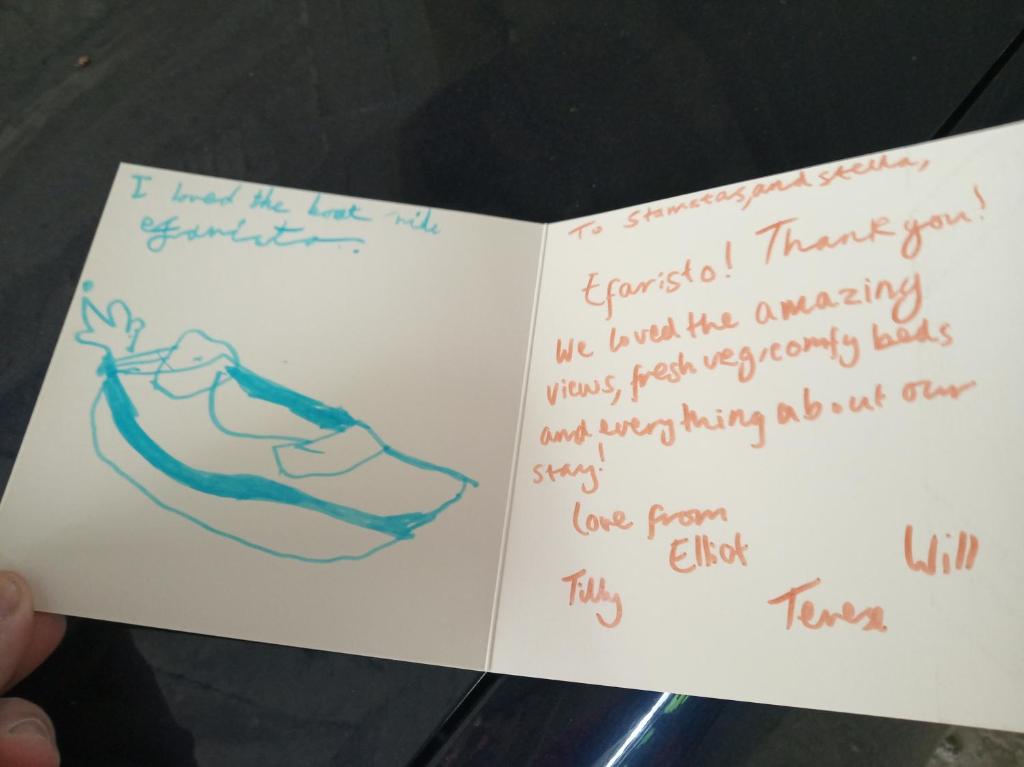 I loved the boat ride
efaristo..
To Stamatas, and Stella,
Efaristo! Thank you!
We loved the amazing
views, fresh veg, comfy beds
and everything about our
stay!
Love from
Elliot
Will
Tilly
Terese